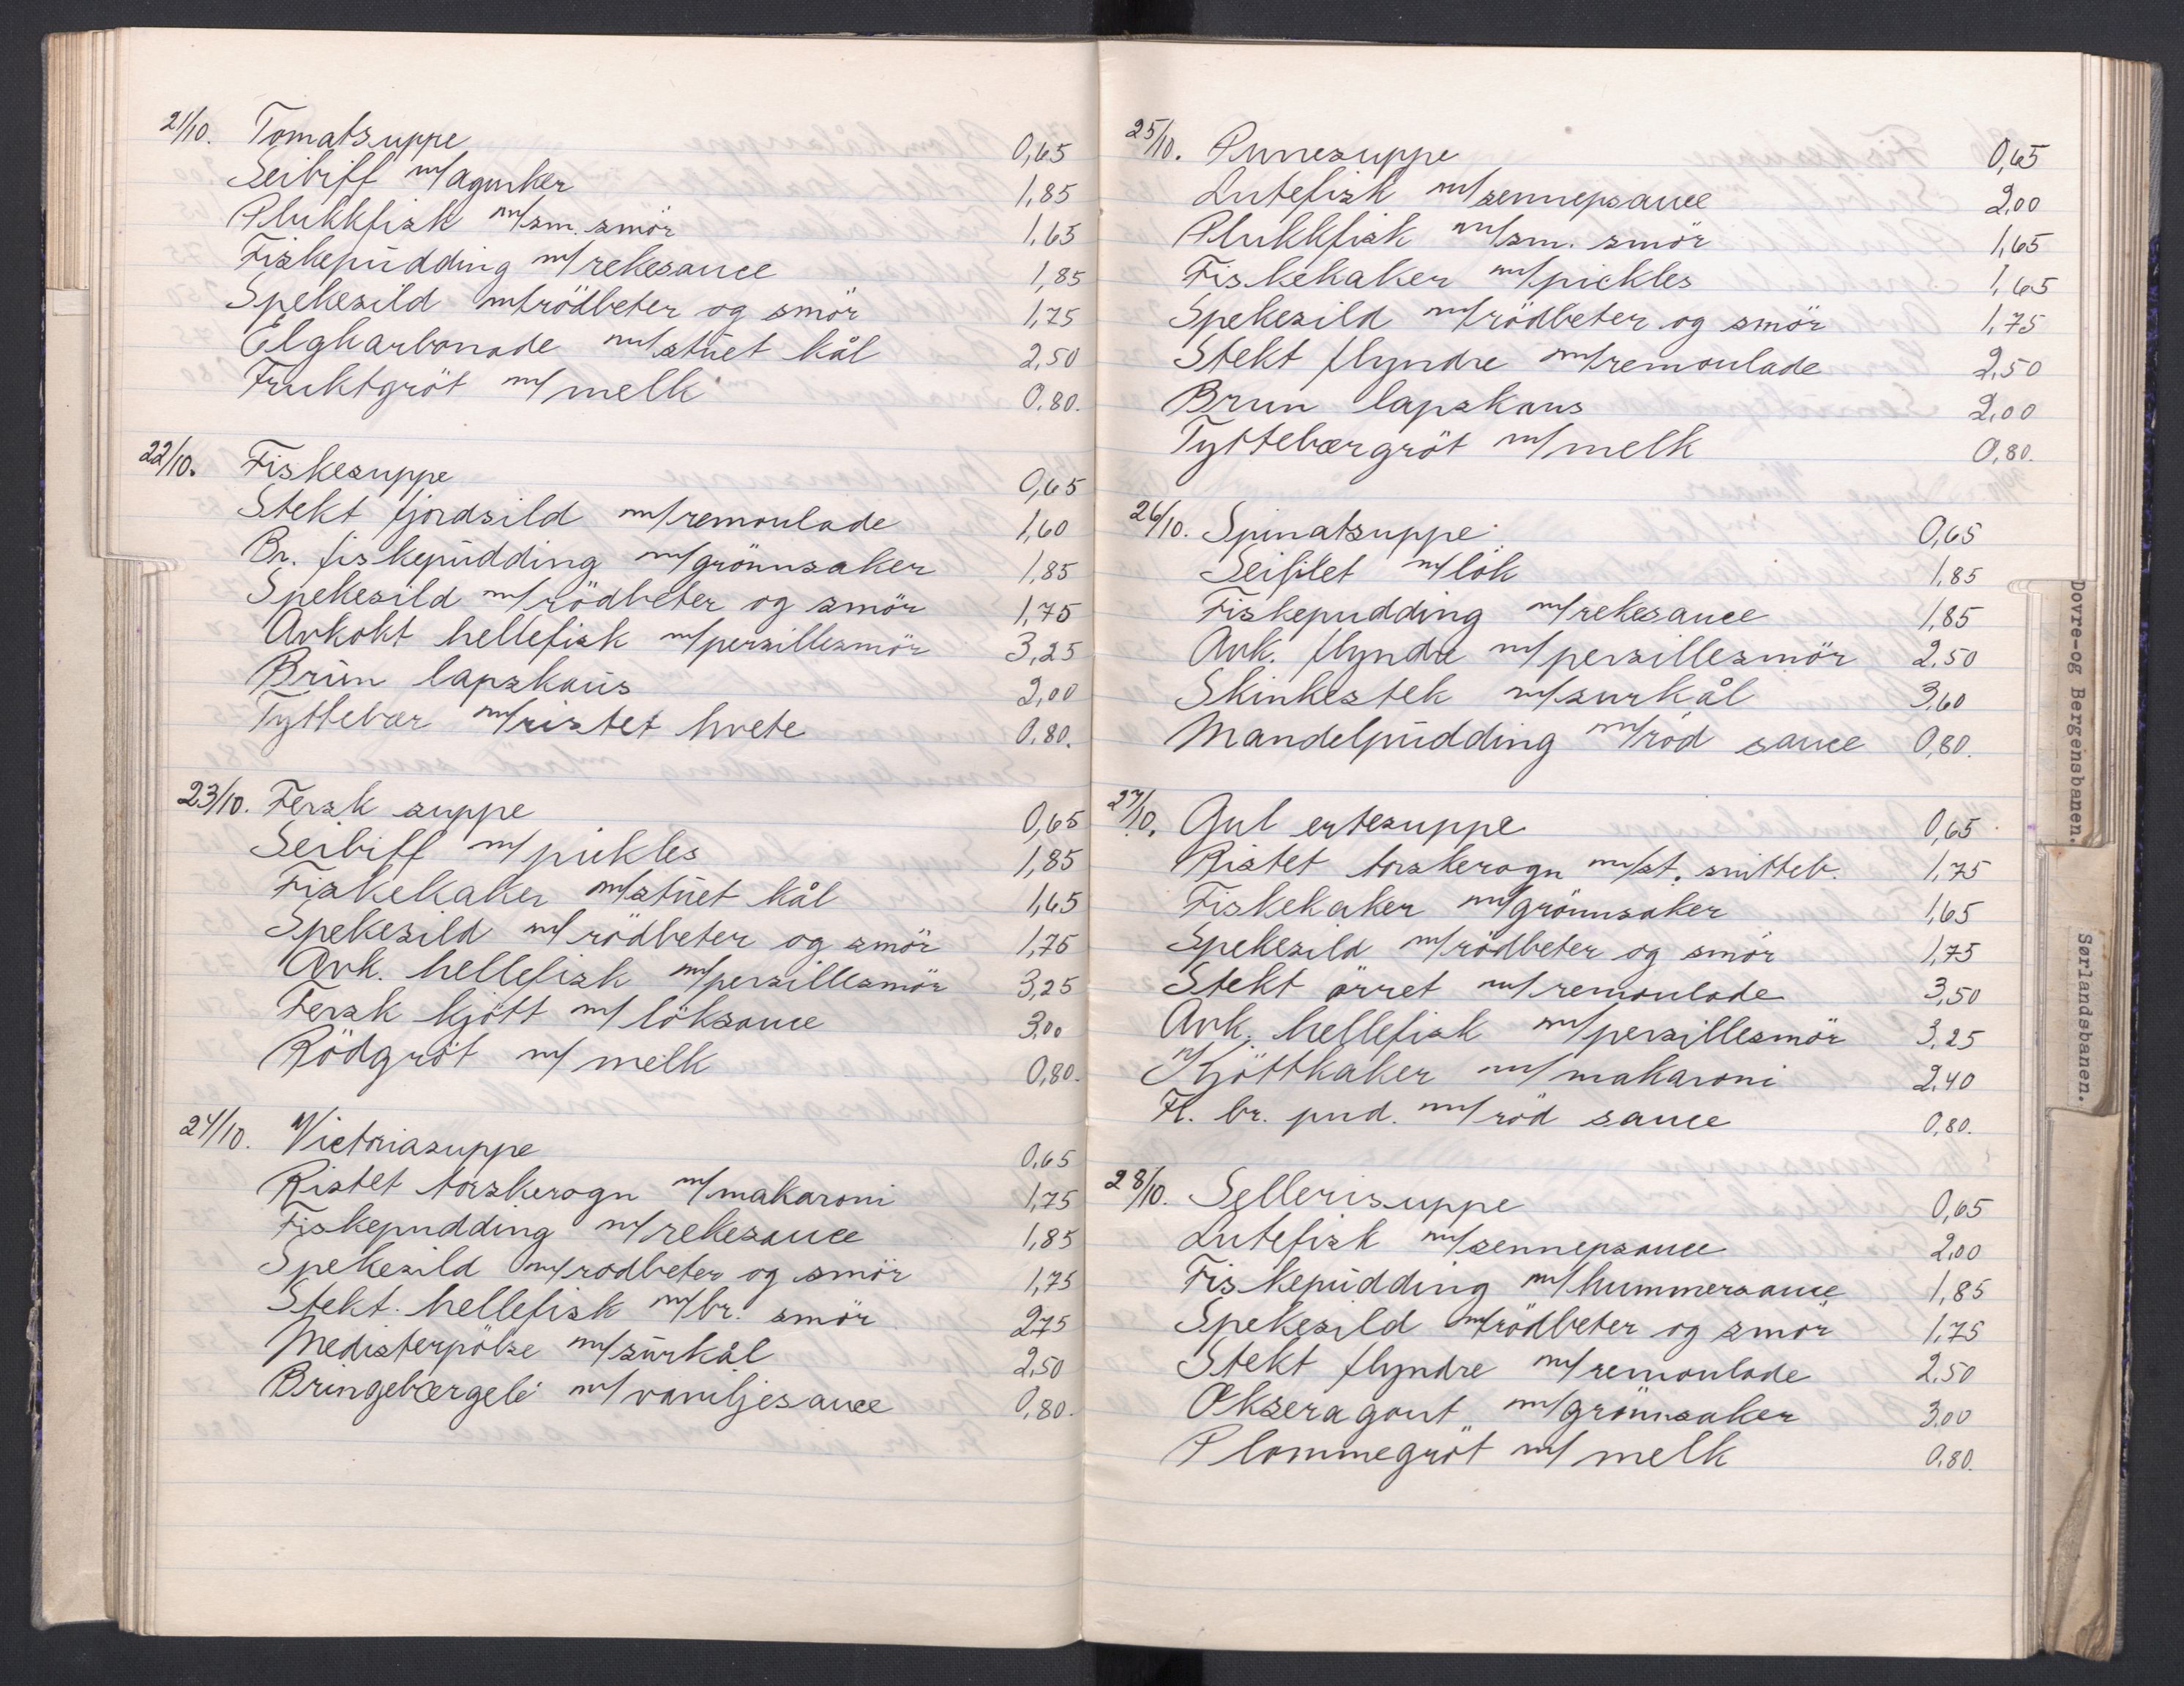 21/10. Tomatsuppe 0,65
Seibiff m/agurker 1,85
Plukkfisk m/sm. smör 1,65
Fiskepudding m/rekesauce 1,85
Spekesild m/rödbeter og smör 1,75
Elgkarbonade m/stuet kål 2,50
Fruktgröt m/melk 0.80.
22/10. Fiskesuppe 0,65
Stekt fjordsild m/remoulade 1,60
Br. fiskepudding m/grönnsaker 1,85
Spekesild m/rödbeter og smör 1,75
Avkokt hellefisk m/persillesmör 3,25
Brun lapskaus 2,00
Tyttebær m/ristet hvete 0.80.
23/10. Fersk suppe 0,65
Seibiff m/pickles 1,85
Fiskekaker m/stuet kål 1,65
Spekesild m/rödbeter og smör 1,75
Avk. hellefisk m/persillesmör 3,25
Fersk kjött m/löksauce 3,00
Rödgröt m/melk 0,80.
24/10. Victoriasuppe 0.65
Ristet torskerogn m/makaroni 1,75
Fiskepudding m/rekesauce 1,85
Spekesild m/rödbeter og smör 1,75
Stekt hellefisk m/br. smör 2,75
Medisterpölse m/surkål 2,50
Bringebærgelé m/vaniljesauce 0,80.
25/10. Purresuppe 0,65
Lutefisk m/sennepsauce 2,00
Plukkfisk m/sm. smör 1,65
Fiskekaker m/pickles 1,65
Spekesild m/rödbeter og smör 1,75
Stekt flyndre m/remoulade 2,50
Brun lapskaus 2,00
Tyttebærgröt m/melk 0,80.
26/10. Spinatsuppe 0,65
Seifilet m/lök 1,85
Fiskepudding m/rekesauce 1,85
Avk. flyndre m/persillesmör 2.50
Skinkestek m/surkål 3,60
Mandelpudding m/röd sauce 0,80.
27/10. Gul ertesuppe 0,65
Ristet torskerogn m/st. snitteb. 1,75
Fiskekaker m/grönnsaker 1,65
Spekesild m/rödbeter og smör 1,75
Stekt örret m/remoulade 3,50
Avk. hellefisk m/persillesmör 3,25
Kjöttkaker m/makaroni 2,40
Fl. br. pud. m/röd sauce 0,80.
28/10. Sellerisuppe 0,65
Lutefisk m/sennepsauce 2,00
Fiskepudding m/hummersauce 1,85
Spekesild m/rödbeter og smör 1,75
Stekt flyndre m/remoulade 2.50
Okseragout m/grönnsaker 3,00
Plommegröt m/melk 0.80.
Dovre-og Bergensbanen.
Sørlandsbanen.